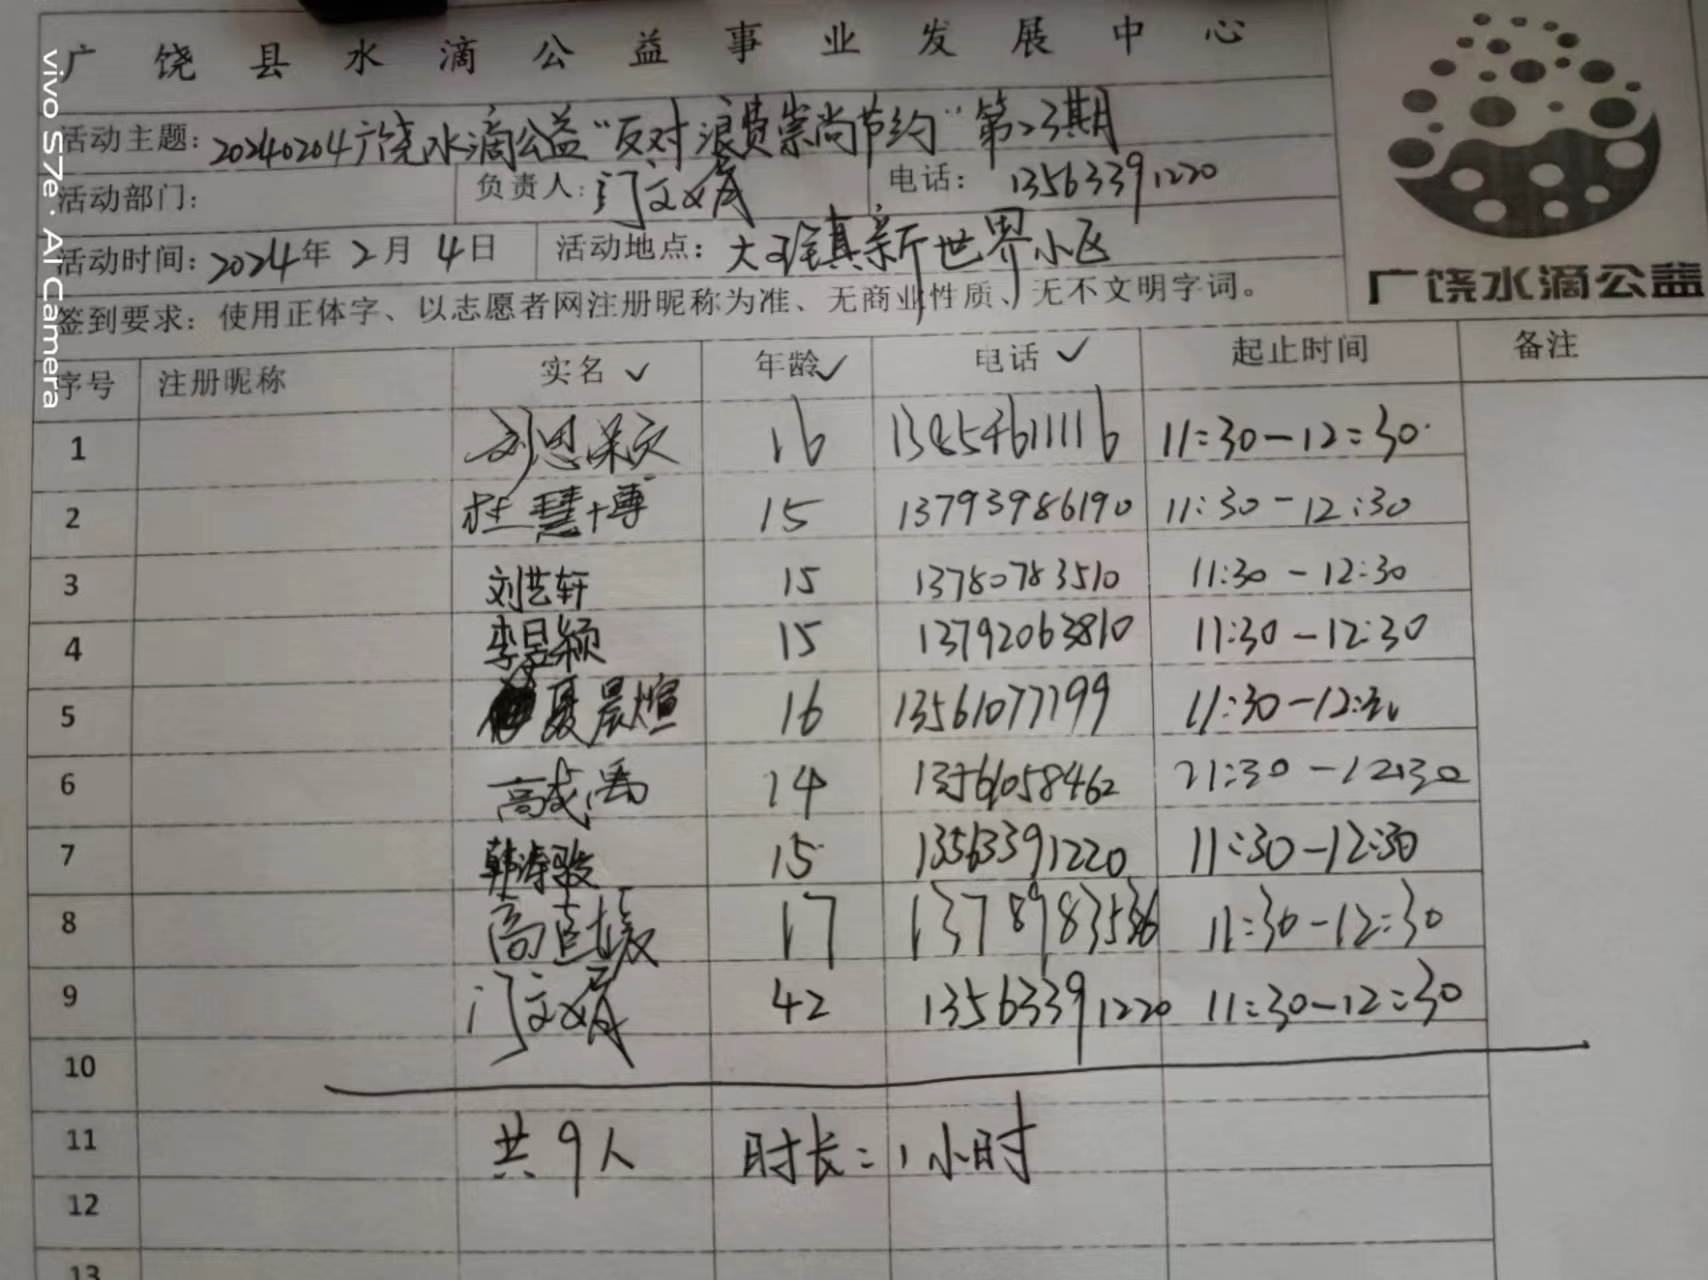 广饶县水滴公益事业发展中心
活动主题：20240204广饶水滴公益“反对浪费崇尚节约”第23期
活动部门： 负责人：门文 电话：13563391220
活动时间：2024年2月4日 活动地点：大王镇新世界小区
签到要求：使用正体字、以志愿者网注册昵称为准、无商业性质、无不文明字词。
广饶水滴公益
序号 注册昵称 实名✓ 年龄✓ 电话✓ 起止时间 备注
1 刘思 16 13854611116 11:30-12:30
2 杜慧博 15 13793986190 11:30-12:30
3 刘艺轩 15 13780783510 11:30-12:30
4 李昱颖 15 13792063810 11:30-12:30
5 夏晨煊 16 13561077199 11:30-12:30
6 高 禹 14 13561058462 11:30-12:30
7 韩 15 13563391220 11:30-12:30
8 高 17 11:30-12:30
9 门文 42 13563391220 11:30-12:30
10
11 共9人 时长：1小时
12
13
vivo S7e·AI Camera